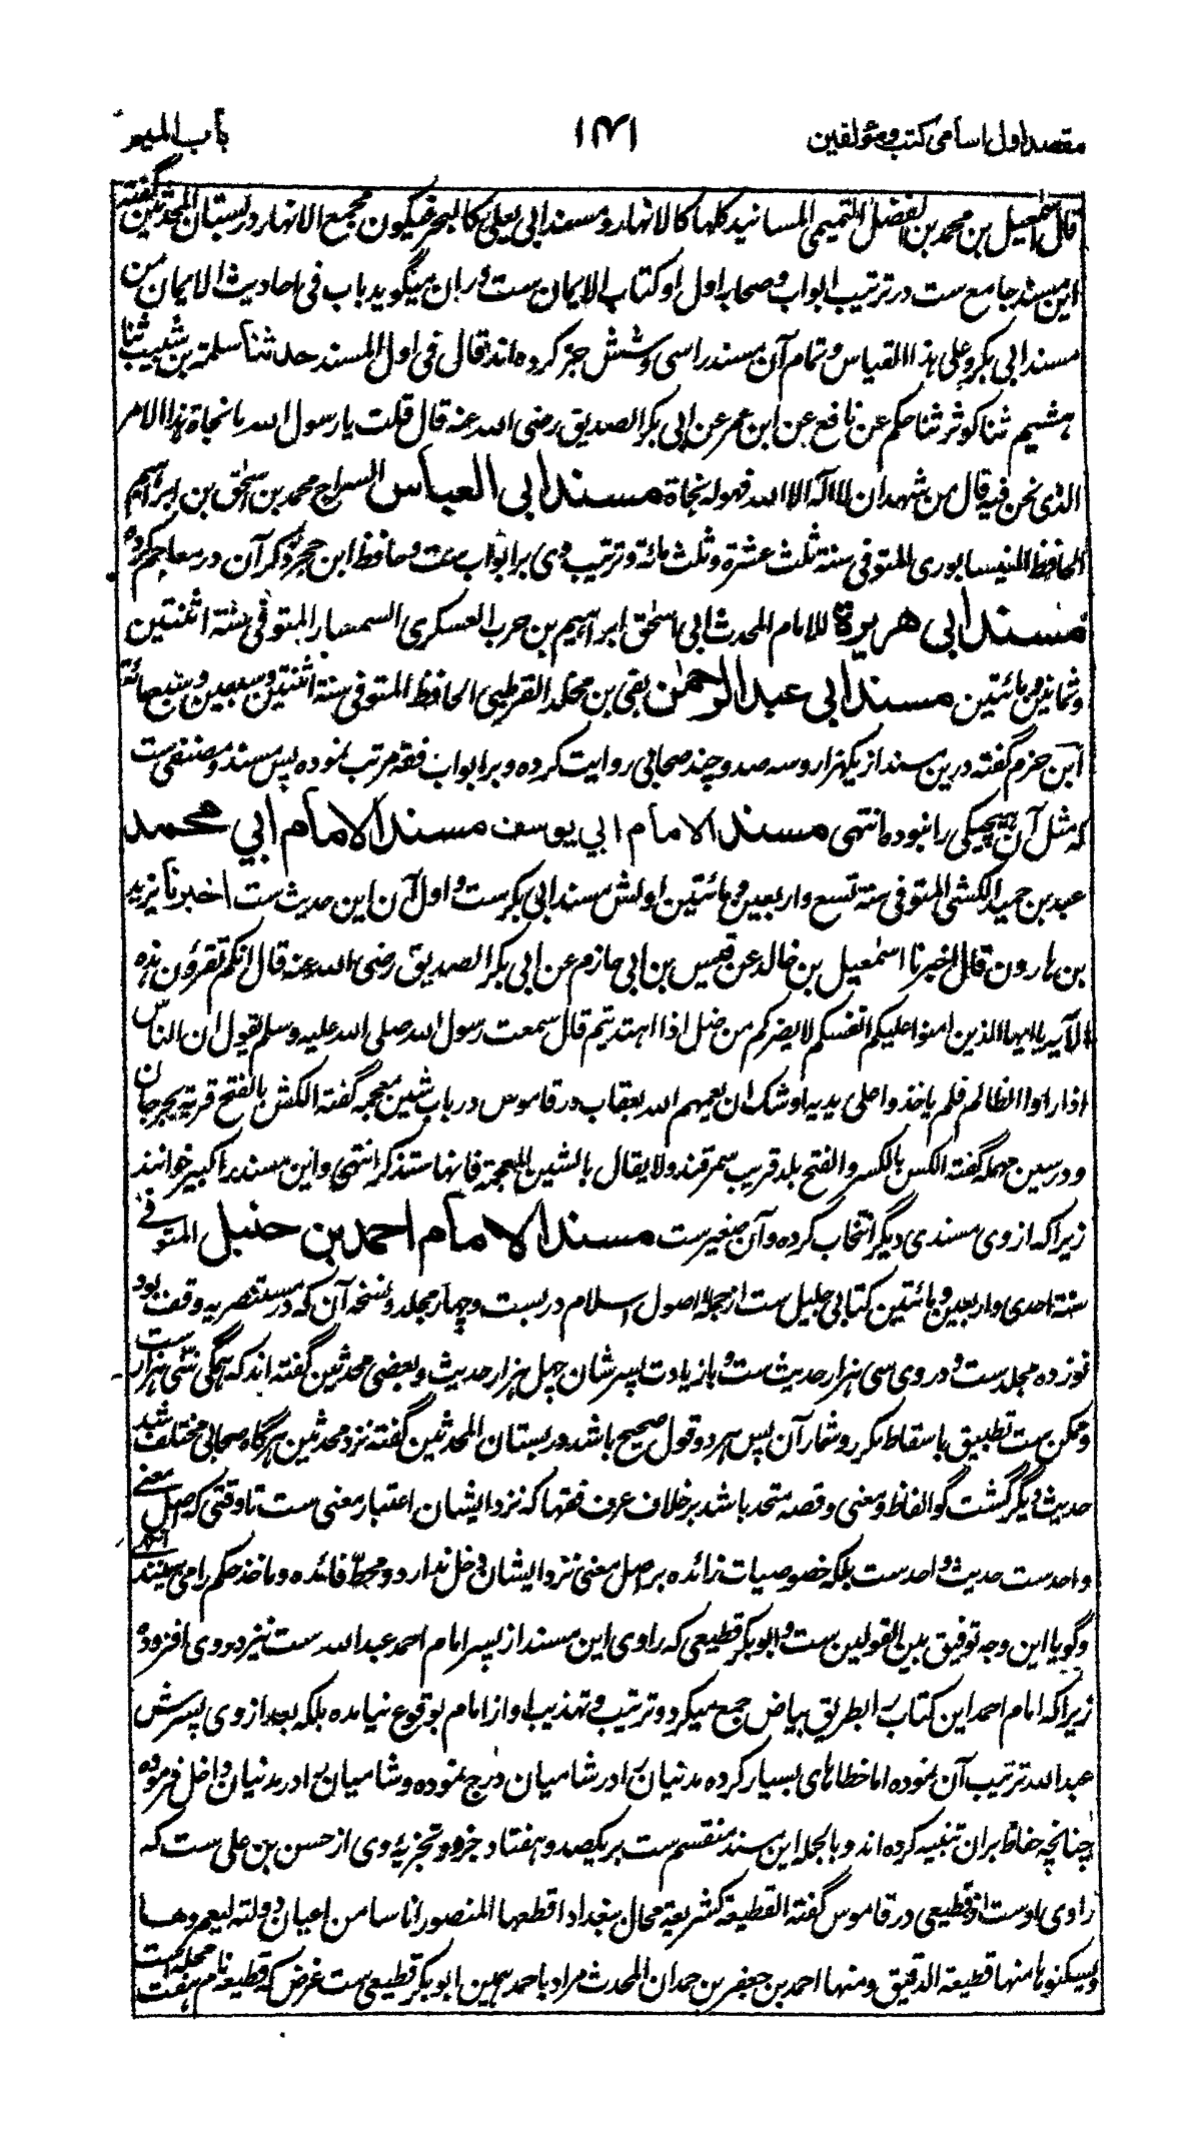 مقصد اول اسامی کتب و مؤلفین
۱۴۱
باب المیم
قال اسمعیل بن محمد بن الفضل التمیمی المسانید کلها کالانهار و مسند ابی یعلی کالبحر فیکون مجمع الانهار در بستان المحدثین گفته
این مسند جامع ست در ترتیب ابواب و صحابه اول او کتاب الایمان ست و دران میگوید باب فی احادیث الایمان من
مسند ابی بکر و علی هذا القیاس و تمام آن مسند را سی و شش جز کرده اند قال فی اول المسند حدثنا سلمة بن شبیب ثنا
هشیم ثنا کوثر ثنا حکم عن نافع عن ابن عمر عن ابی بکر الصدیق رضی الله عنه قال قلت یا رسول الله ما نجاة هذا الامر
الذی نحن فیه قال من شهد ان لا اله الا الله فهو له نجاة مسند ابی العباس السراج محمد بن اسحق بن ابراهیم
الحافظ النیسابوری المتوفی سنة ثلث عشرة و ثلث مائة و ترتیب وی بر ابواب ست و حافظ ابن حجر ذکر آن در معاجم کرده
مسند ابی هریرة للامام المحدث ابی اسحق ابراهیم بن حرب العسکری السمسار المتوفی سنة اثنتین
و ثمانین و مائتین مسند ابی عبد الرحمن بقی بن مخلد القرطبی الحافظ المتوفی سنة اثنتین و سبعین و سبع مائة
ابن حزم گفته درین مسند از یکهزار و سه صد و چند صحابی روایت کرده و بر ابواب فقه مرتب نموده پس مسند و مصنفی ست
که مثل آن هیچیکی را نبوده انتهی مسند الامام ابی یوسف مسند الامام ابی محمد
عبد بن حمید الکشی المتوفی سنة تسع و اربعین و مائتین اولش مسند ابی بکر ست و اول آن این حدیث ست اخبرنا یزید
بن هارون قال اخبرنا اسمعیل بن خالد عن قیس بن ابی حازم عن ابی بکر الصدیق رضی الله عنه قال انکم تقرؤن هذه
الآیه یا ایها الذین امنوا علیکم انفسکم لا یضرکم من ضل اذا اهتدیتم قال سمعت رسول الله صلی الله علیه وسلم یقول ان الناس
اذا راوا الظالم فلم یاخذوا علی یدیه اوشک ان یعمهم الله بعقاب در قاموس در باب شین معجمه گفته الکش بالفتح قریة بجرجان
و در سین مهمله گفته الکس بالکسر و الفتح بلد قریب سمرقند و لا یقال بالشین المعجمة فانها ستذکر انتهی و این مسند را کبیر خوانند
زیرا که از وی مسندی دیگر انتخاب کرده و آن صغیر ست مسند الامام احمد بن حنبل المتوفی
سنة احدی و اربعین و مائتین کتابی جلیل ست از جمله اصول اسلام در بست و چهار مجلد و نسخه آن که در مستنصریه وقف بود
نوزده مجلد ست و در وی سی هزار حدیث ست و با زیادت پسرشان چهل هزار حدیث و بعضی محدثین گفته اند که همگی سی هزار ست
و ممکن ست تطبیق باسقاط مکرر و شمار آن پس هر دو قول صحیح باشد در بستان المحدثین گفته نزد محدثین هرگاه صحابی مختلف شد
حدیث دیگر گشت گو الفاظ و معنی و قصه متحد باشد بر خلاف عرف فقها که نزد ایشان اعتبار معنی ست تا وقتی که اصل معنی
واحدست حدیث واحدست بلکه خصوصیات زائده بر اصل معنی نزد ایشان دخل ندارد و محط فائده و ماخذ حکم را می بینند
و گویا این وجه توفیق بین القولین ست و ابو بکر قطیعی که راوی این مسند از پسر امام احمد عبد الله ست نیز در وی افزوده
زیرا که امام احمد این کتاب را بطریق بیاض جمع میکرد و ترتیب و تهذیب او از امام بوقوع نیامده بلکه بعد از وی پسرش
عبد الله ترتیب آن نموده اما خطاهای بسیار کرده مدنیان را در شامیان درج نموده و شامیان را در مدنیان داخل فرموده
چنانچه حفاظ بران تنبیه کرده اند و بالجمله این مسند منقسم ست بر یکصد و هفتاد جزو و تجزیه وی از حسن بن علی ست که
راوی اوست از قطیعی در قاموس گفته القطیعة کشریعة محال ببغداد اقطعها المنصور اناسا من اعیان دولته لیعمروها
و یسکنوها منها قطیعة الدقیق و منها احمد بن جعفر بن حمدان المحدث مراد باحمد همین ابو بکر قطیعی ست غرض که قطیعه نام هفت محله است